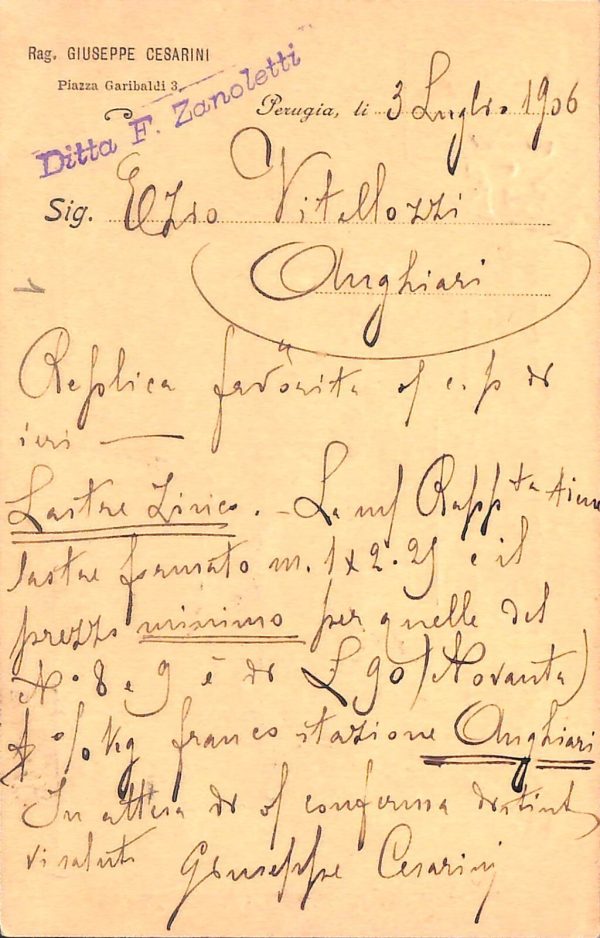 Rag. GIUSEPPE CESARINI
Piazza Garibaldi 3,
Ditta F. Zanoletti
Perugia, li 3 Luglio 1906
Sig. Ezio Vitellozzi
Anghiari
Replica favorita of c.p di
ieri —
Lastre Zinco. - La mf Rappta tiene
lastre formato m. 1 x 2.25 e il
prezzo minimo per quelle del
No 8 e 9 è di £ 90 (Novanta)
% Kg franco stazione Anghiari
In attesa di of conferma distint
vi saluti Giuseppe Cesarini